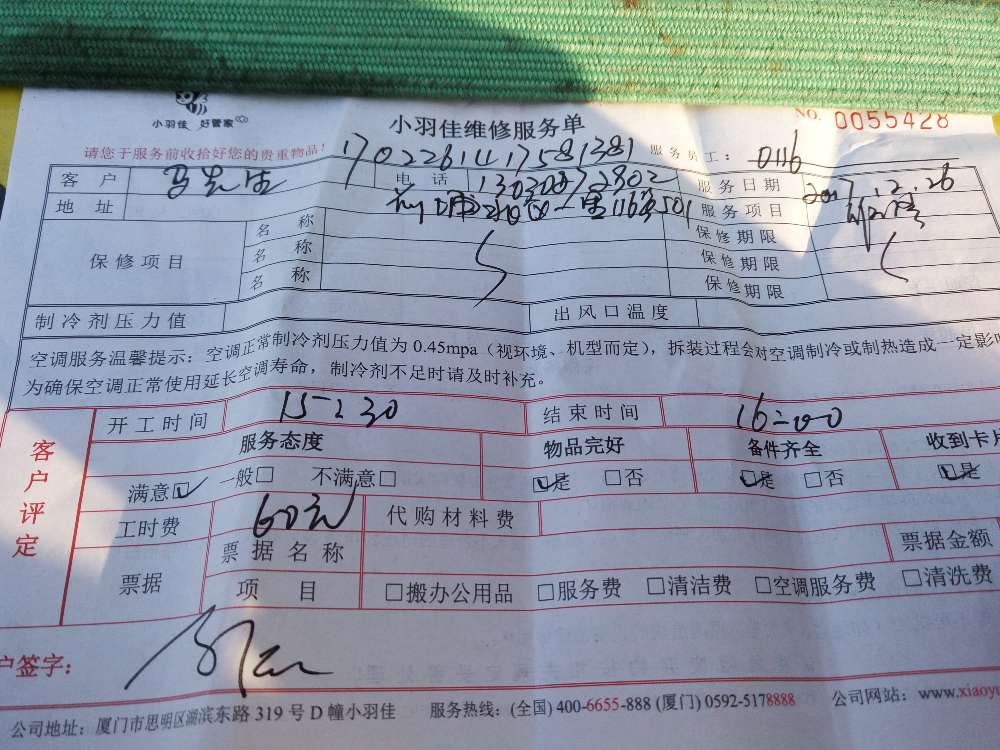 小羽佳 好管家
小羽佳维修服务单
NO. 0055428
请您于服务前收拾好您的贵重物品! 170226141417581381 服务员工: 0116
客户 马先生 电话 服务日期 2017.12.26
地址 116 501 服务项目
保修项目 名称 保修期限
名称 保修期限
名称 保修期限
制冷剂压力值 出风口温度
空调服务温馨提示：空调正常制冷剂压力值为 0.45mpa（视环境、机型而定），拆装过程会对空调制冷或制热造成一定影响
为确保空调正常使用延长空调寿命，制冷剂不足时请及时补充。
客户评定
开工时间 15:30 结束时间 16:00
服务态度 物品完好 备件齐全 收到卡片
满意☑ 一般□ 不满意□ ☑是 □否 ☑是 □否 ☑是
工时费 60元 代购材料费
票据 票据名称 票据金额
项目 □搬办公用品 □服务费 □清洁费 □空调服务费 □清洗费
户签字:
公司地址: 厦门市思明区湖滨东路 319 号 D 幢小羽佳 服务热线: (全国) 400-6655-888 (厦门) 0592-5178888 公司网站: www.xiaoyu